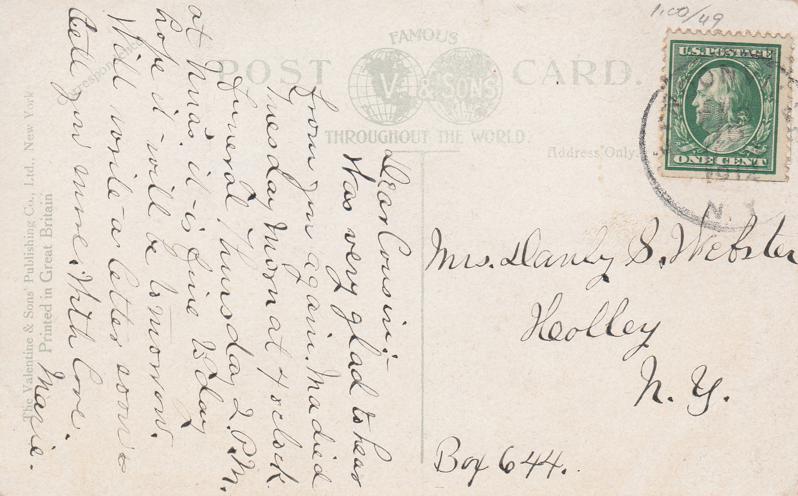 1.00/49
FAMOUS
POST CARD.
V. & SONS
THROUGHOUT THE WORLD.
Correspondence
Address Only.
U.S. POSTAGE
ONE CENT
1912
N.Y.
Dear Cousin:-
Was very glad to hear
from you again. Ma died
Tuesday morn at 4 oclock.
Funeral Thursday 2. P.M.
at Nuas. it is fine to day
hope it will be to morrow.
Will write a letter soon &
tell you more. With love.
Marie.
Mrs. Danly S. Webster
Holley
N. Y.
Box 644.
The Valentine & Sons' Publishing Co., Ltd., New York
Printed in Great Britain